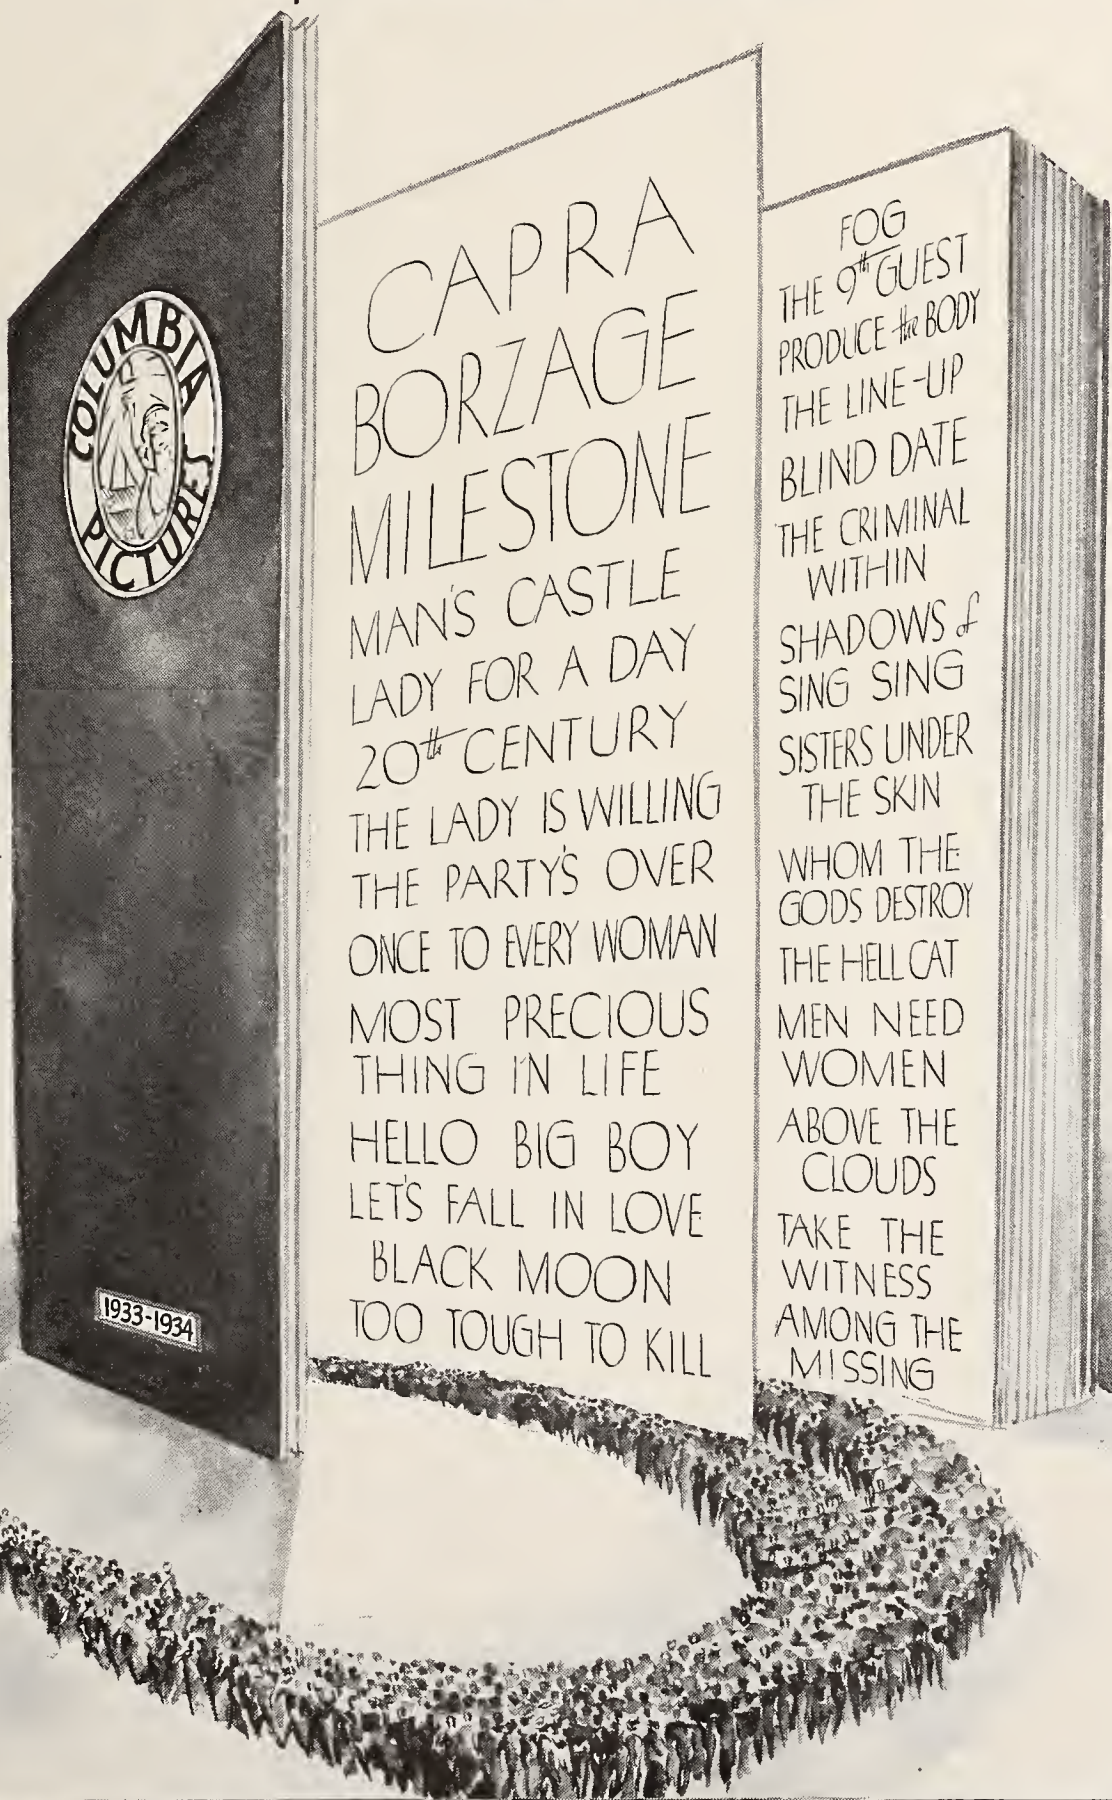 COLUMBIA
PICTURES
1933-1934
CAPRA
BORZAGE
MILESTONE
MAN'S CASTLE
LADY FOR A DAY
20th CENTURY
THE LADY IS WILLING
THE PARTY'S OVER
ONCE TO EVERY WOMAN
MOST PRECIOUS
THING IN LIFE
HELLO BIG BOY
LET'S FALL IN LOVE
BLACK MOON
TOO TOUGH TO KILL
FOG
THE 9th GUEST
PRODUCE the BODY
THE LINE-UP
BLIND DATE
THE CRIMINAL
WITHIN
SHADOWS of
SING SING
SISTERS UNDER
THE SKIN
WHOM THE
GODS DESTROY
THE HELL CAT
MEN NEED
WOMEN
ABOVE THE
CLOUDS
TAKE THE
WITNESS
AMONG THE
MISSING